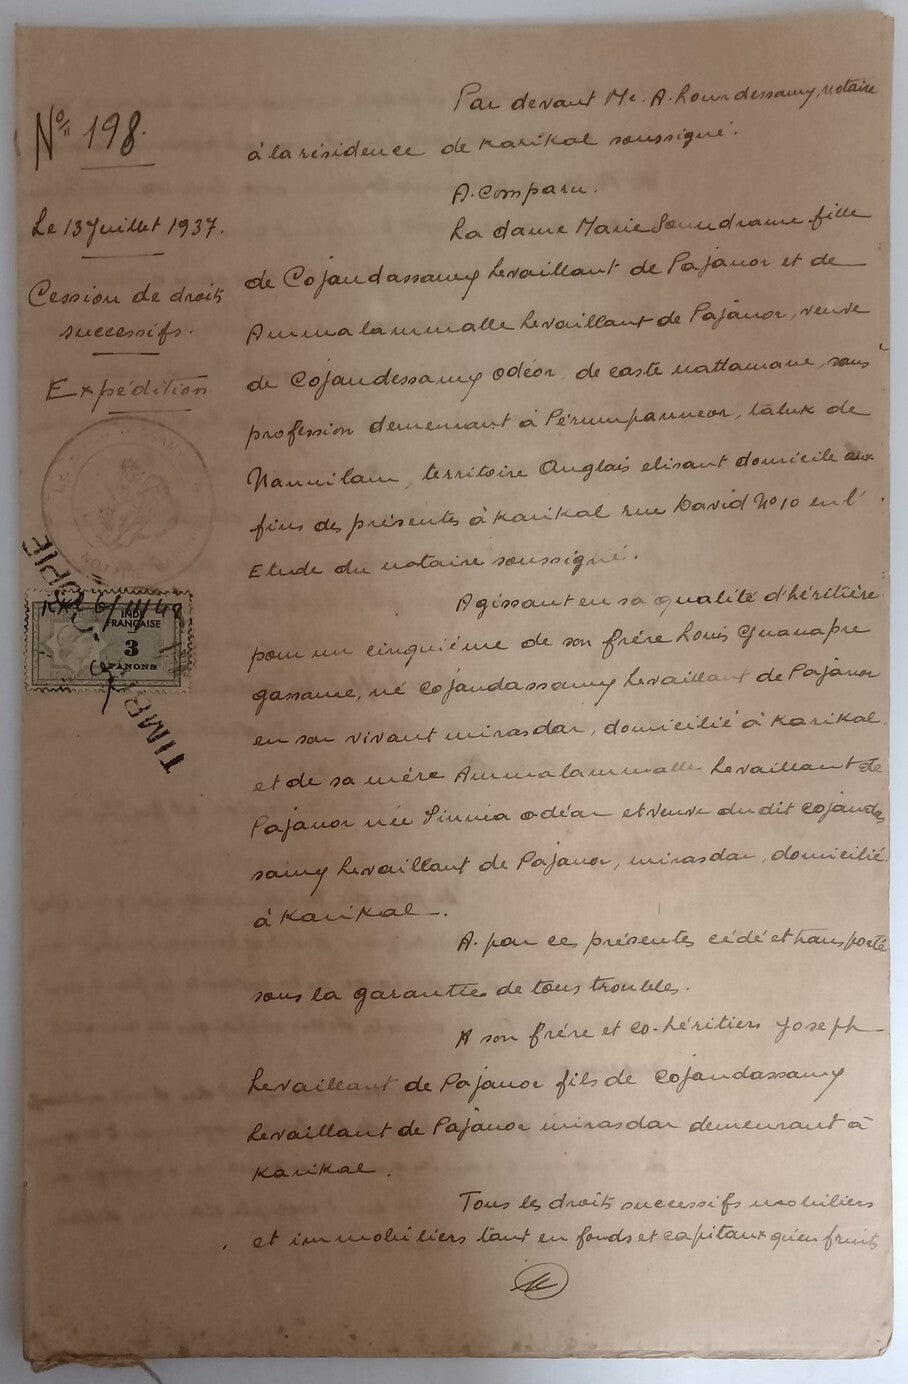 No 198.
Le 13 Juillet 1937.
Cession de droits
successifs.
Expédition
NOTAIRE
COPIE
Kkl 6/11/40
INDE
FRANÇAISE
3
FANONS
TIMBRE
Par devant Me. A. Lourdessamy, notaire
à la résidence de Karikal soussigné.
A. Comparu.
La dame Marie Soundrame fille
de Cojandassamy Levaillant de Pajanor et de
Ammalammalle Levaillant de Pajanor, veuve
de Cojandessamy Odéar, de caste nattamane, sans
profession demeurant à Pérumpanneor, taluk de
Nannilam, territoire Anglais elisant domicile aux
fins des présentes à Karikal rue David No 10 en l'
Etude du notaire soussigné.
Agissant en sa qualité d'héritière
pour un cinquième de son frére Louis Gnanapre
gassame, né Cojandassamy Levaillant de Pajanor
en son vivant mirasdar, domicilié à Karikal
et de sa mére Ammalammalle Levaillant de
Pajanor née Sinnia Odéar et veuve du dit Cojandas
samy Levaillant de Pajanor, mirasdar, domicilié
à Karikal.
A. par ces présentes cédé et transporté
sous la garanties de tous troubles.
A son frére et co-héritiers Joseph
Levaillant de Pajanor fils de Cojandassamy
Levaillant de Pajanor mirasdar demeurant à
Karikal.
Tous les droits successifs mobiliers
et immobiliers tant en fonds et capitaux qu'en fruits